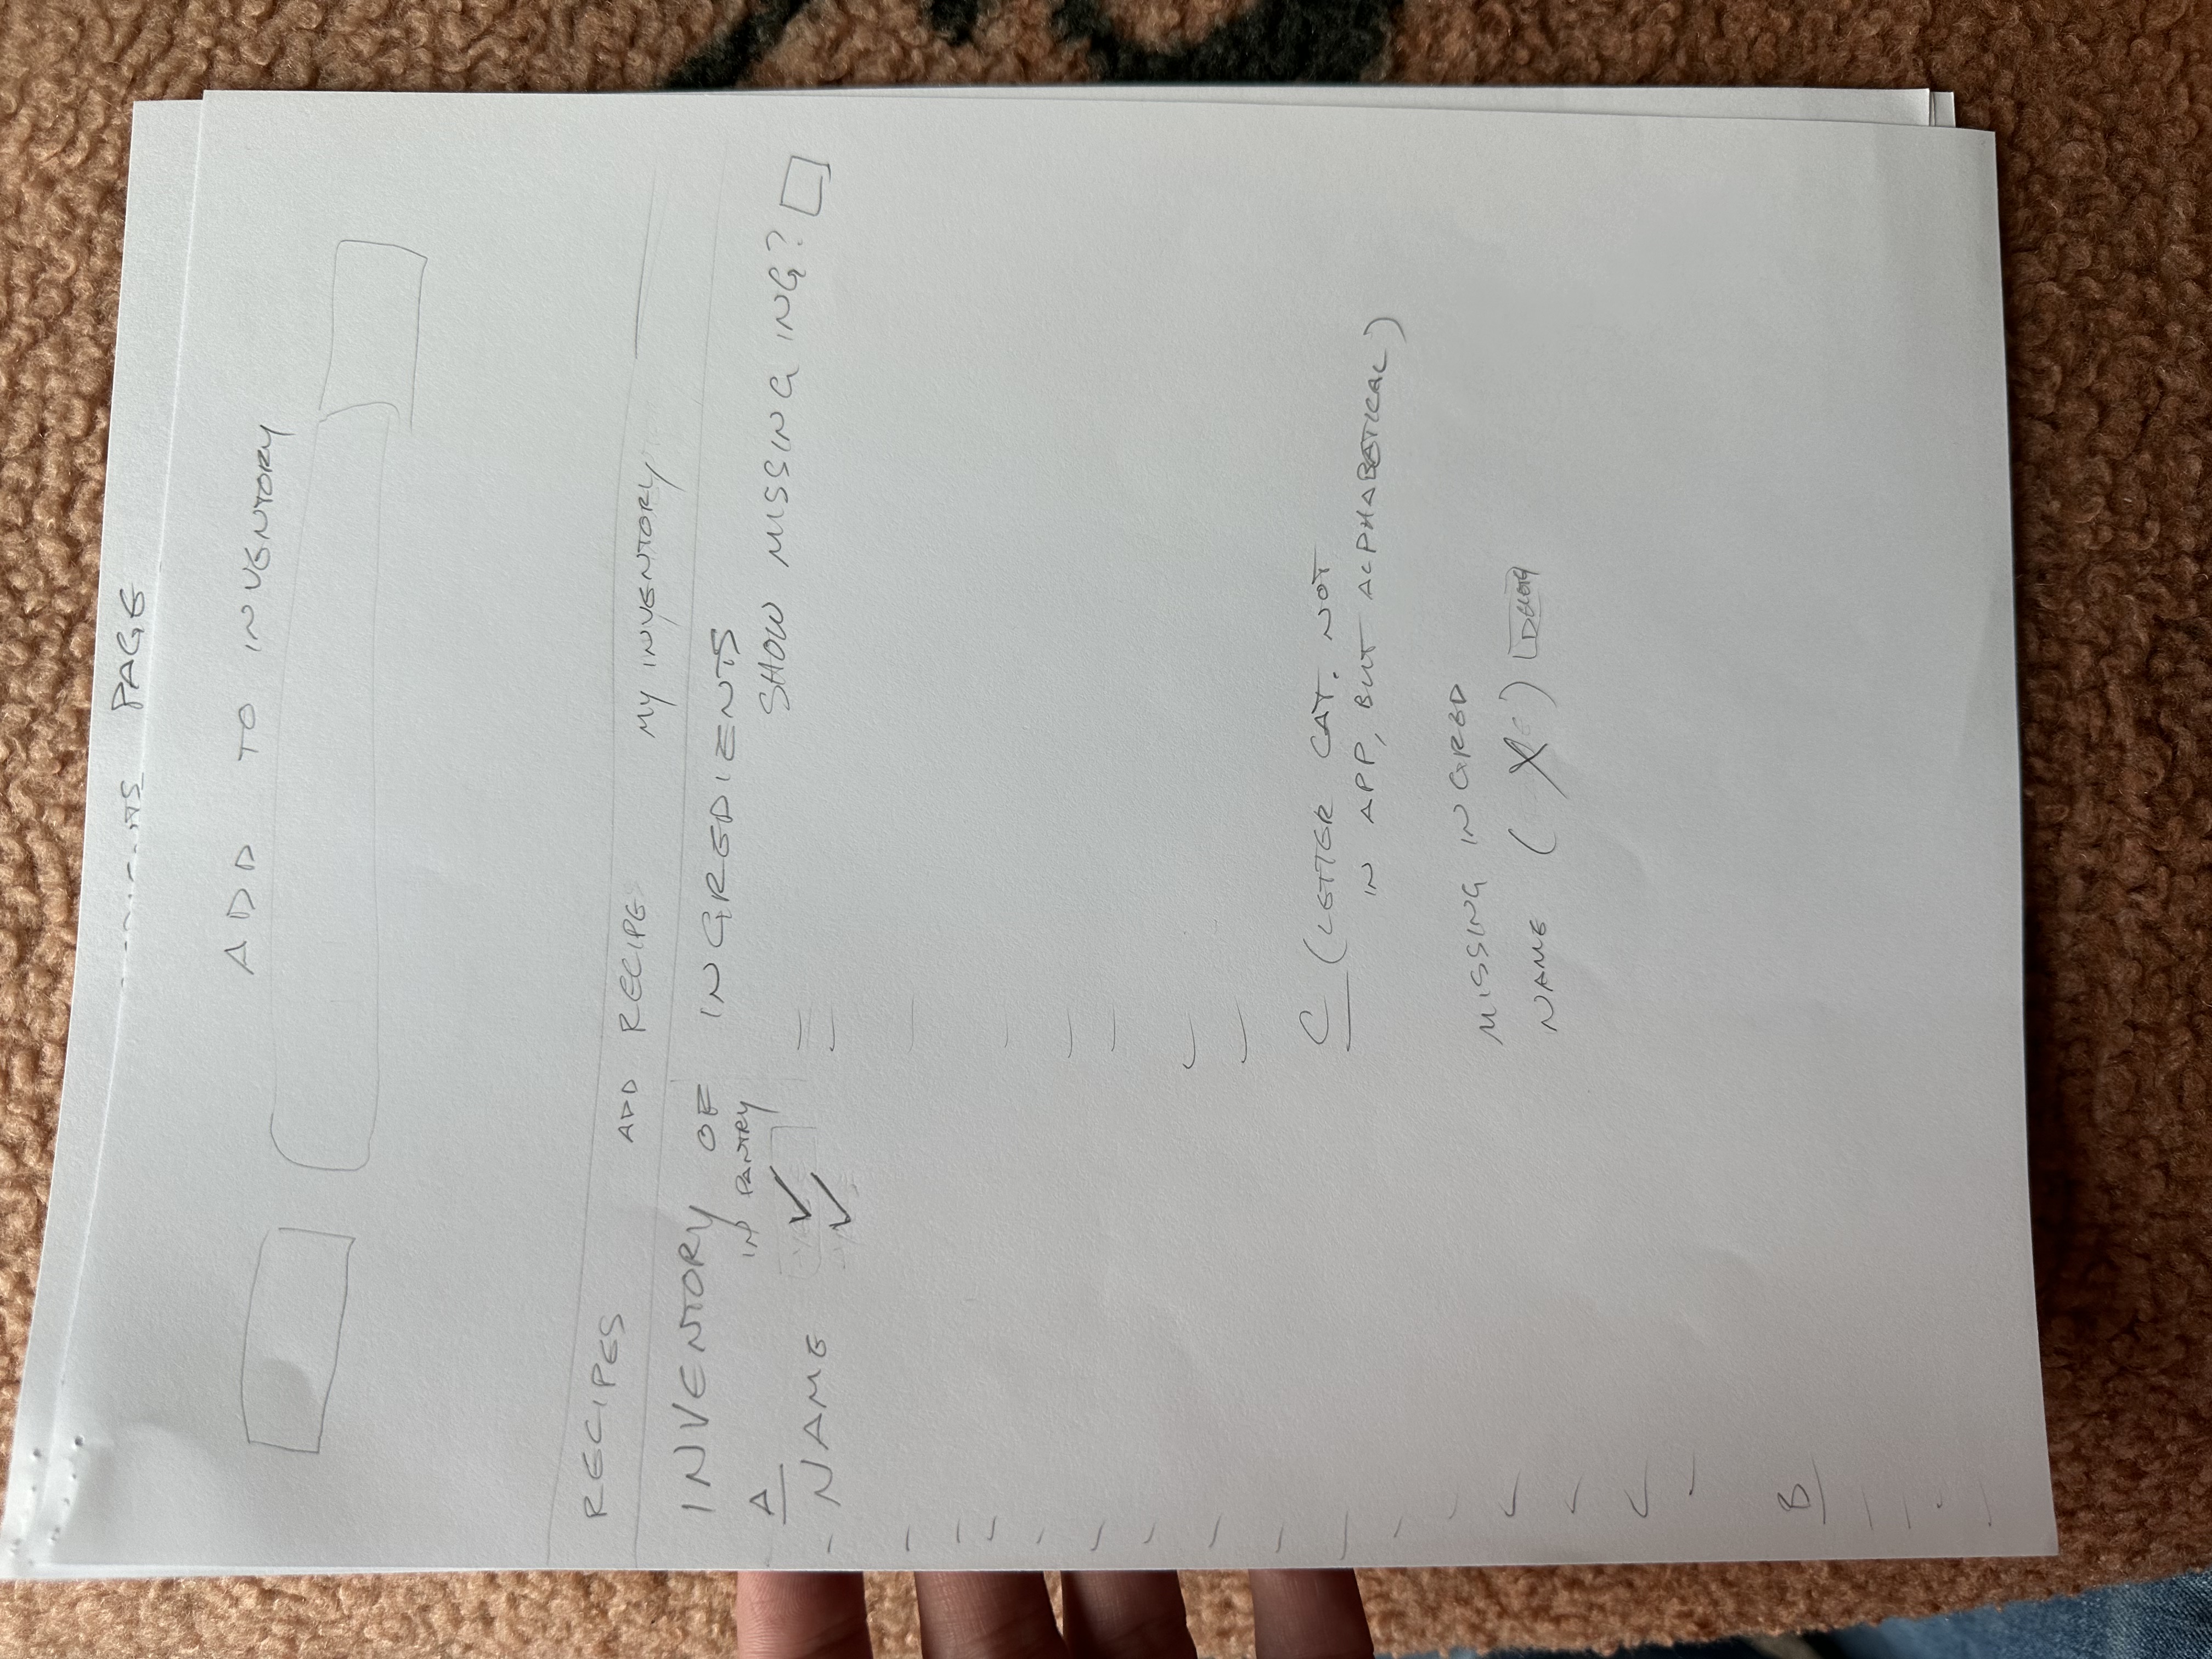 PAGE
ADD TO INVENTORY
RECIPES ADD RECIPE MY INVENTORY
INVENTORY OF INGREDIENTS
A IN PANTRY
SHOW MISSING ING?
NAME ✓
✓
C (LETTER CAT. NOT
IN APP, BUT ALPHABETICAL)
MISSING INGRED
NAME ( X ) DELETE
B